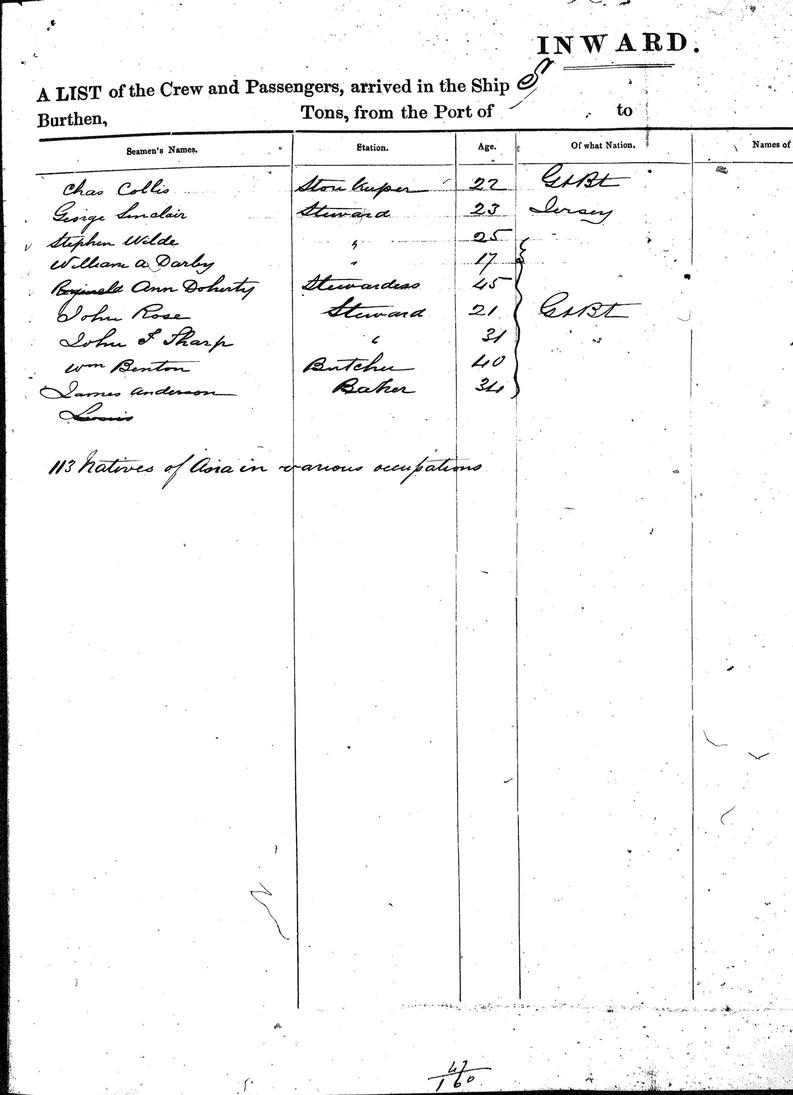 INWARD.
A LIST of the Crew and Passengers, arrived in the Ship
Burthen, Tons, from the Port of to
Seamen's Names. Station. Age. Of what Nation. Names of
Chas Collis Storekeeper 22 Gt Bt
George Sinclair Steward 23 Jersey
Stephen Wilde " 25
William A Darby " 17
Ann Doherty Stewardess 45
John Rose Steward 21 Gt Bt
John F Sharp " 31
Wm Benton Butcher 40
James Anderson Baker 34
Louis
113 Natives of Asia in various occupations
47
160